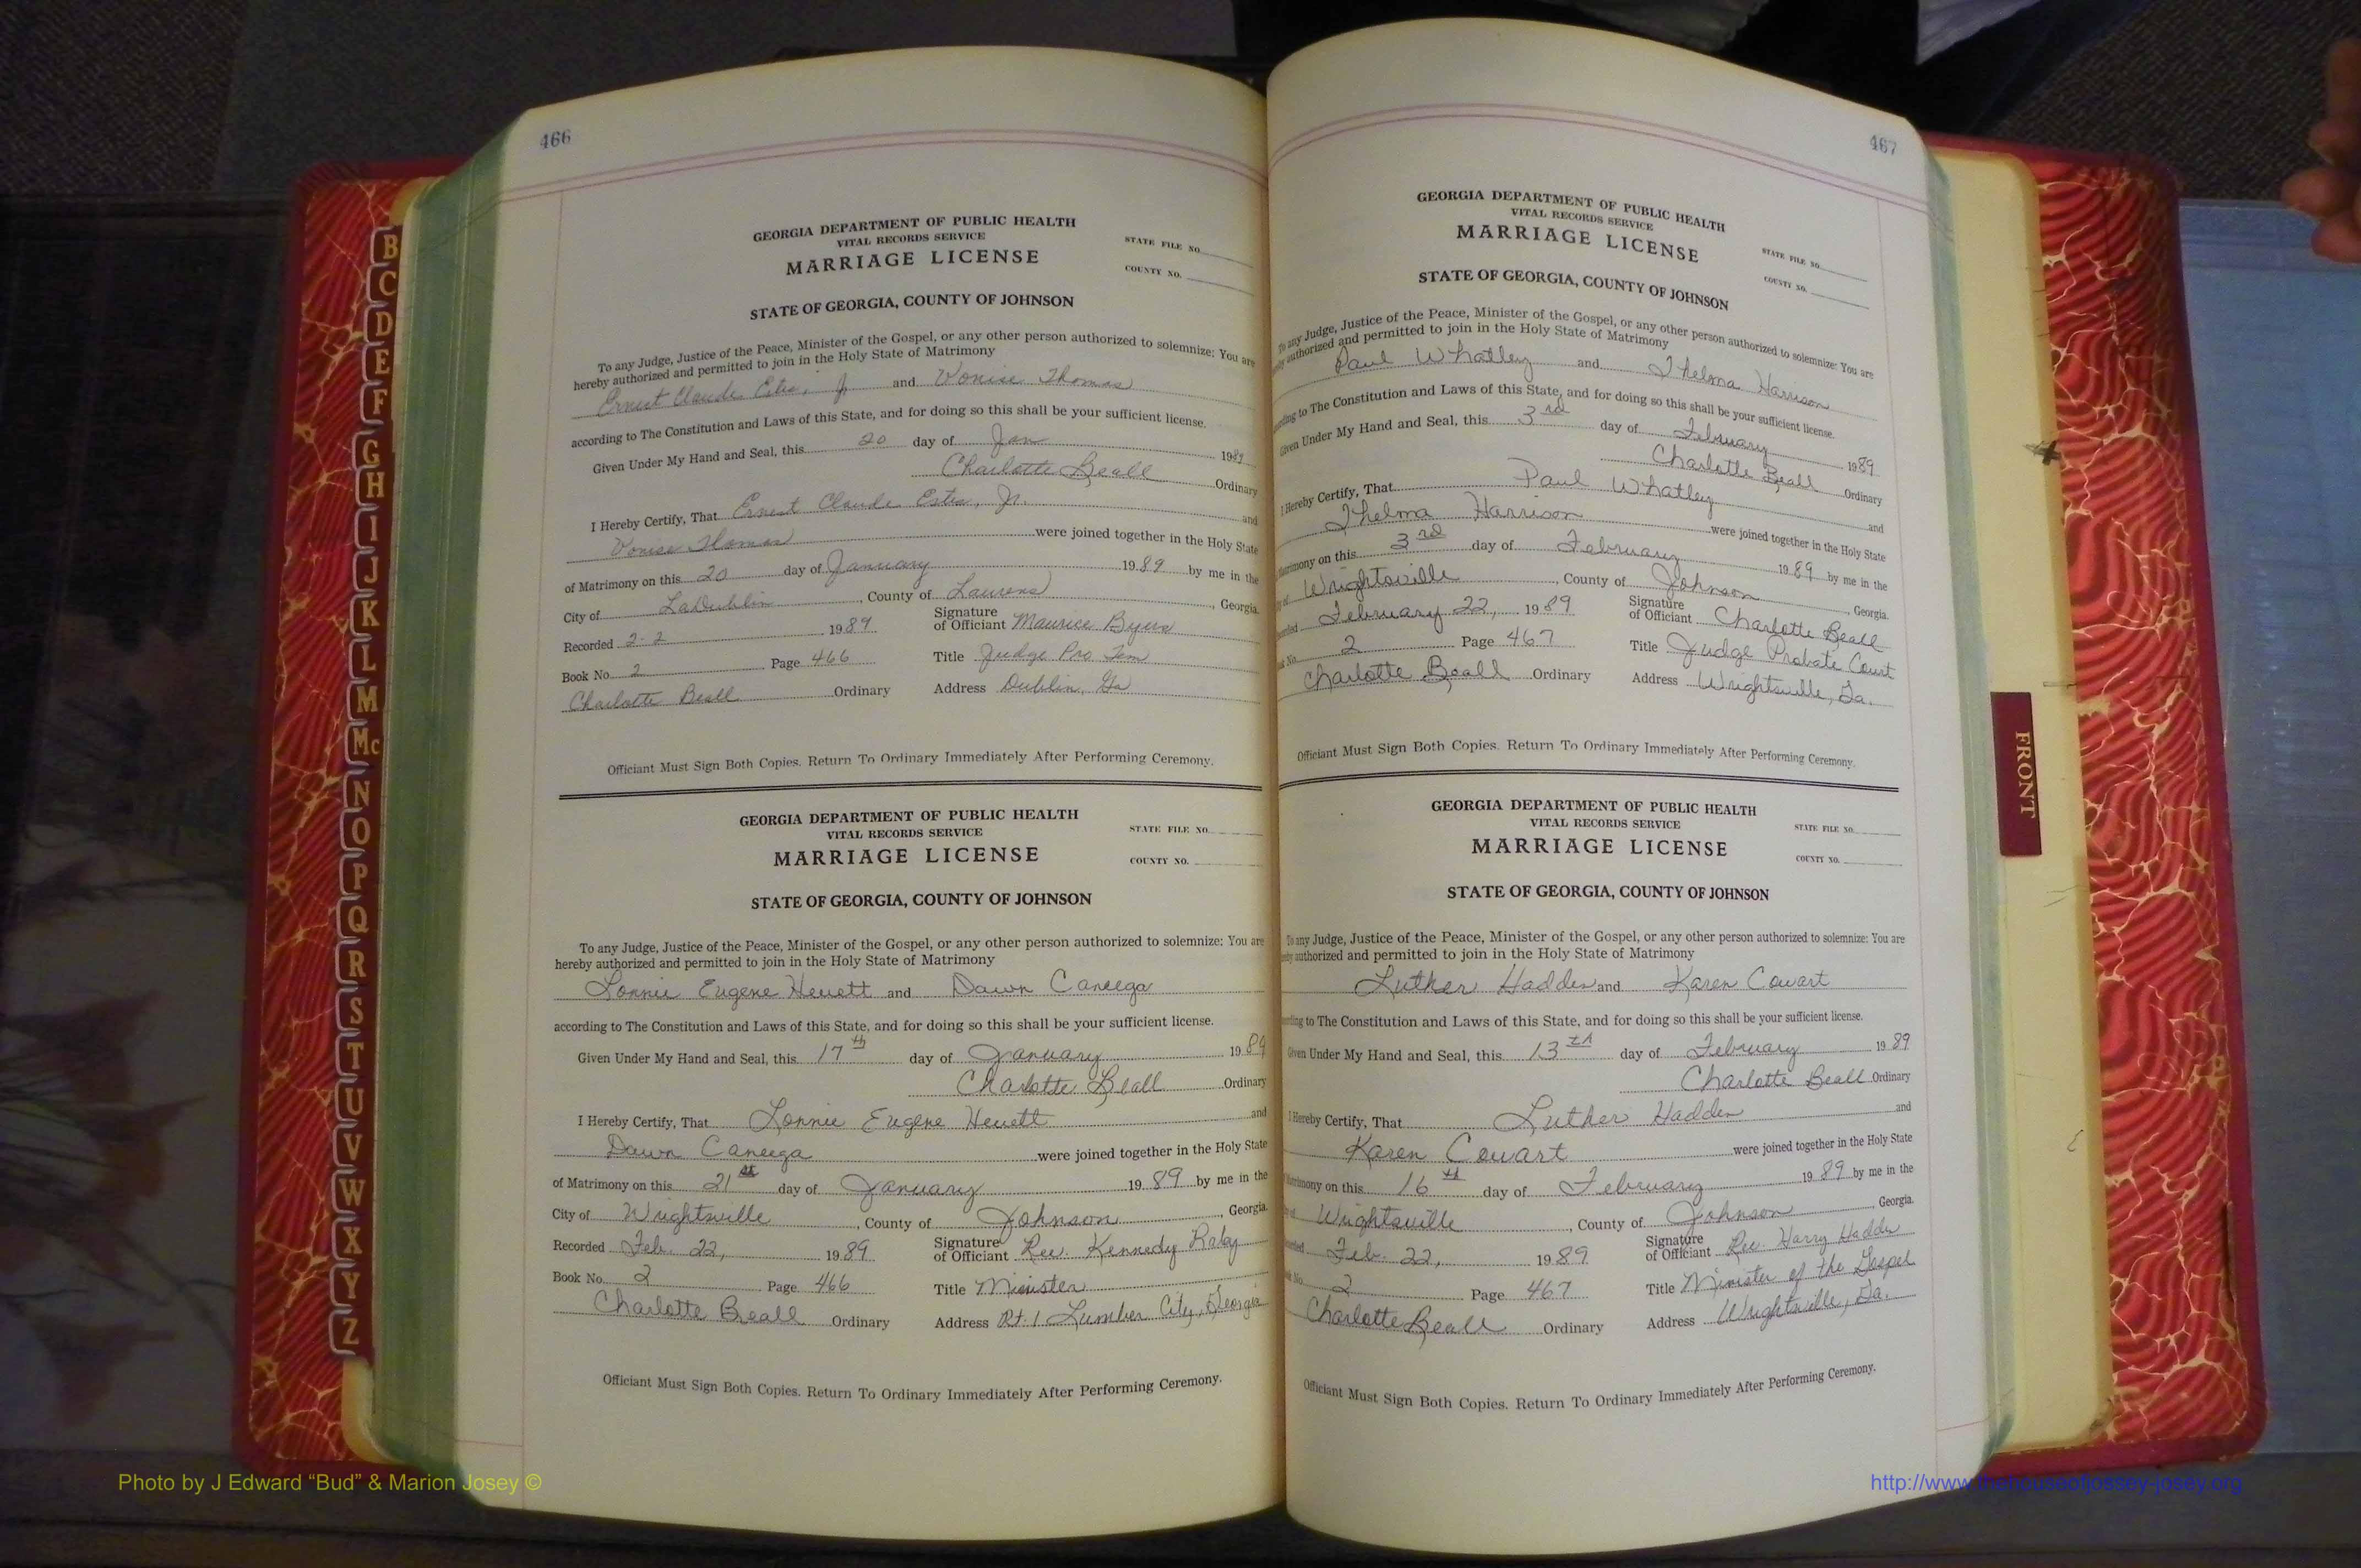 466
GEORGIA DEPARTMENT OF PUBLIC HEALTH
VITAL RECORDS SERVICE
MARRIAGE LICENSE
STATE FILE NO.
COUNTY NO.
STATE OF GEORGIA, COUNTY OF JOHNSON
To any Judge, Justice of the Peace, Minister of the Gospel, or any other person authorized to solemnize: You are
hereby authorized and permitted to join in the Holy State of Matrimony
Ernest Claude Estes, Jr and Vonise Thomas
according to The Constitution and Laws of this State, and for doing so this shall be your sufficient license.
Given Under My Hand and Seal, this 20 day of Jan 1989
Charlotte Beall Ordinary
I Hereby Certify, That Ernest Claude Estes, Jr. and
Vonise Thomas were joined together in the Holy State
of Matrimony on this 20 day of January 1989 by me in the
City of Dublin, County of Laurens, Georgia.
Recorded 2-2 1989 Signature of Officiant Maurice Byers
Book No. 2 Page 466 Title Judge Pro Tem
Charlotte Beall Ordinary Address Dublin, Ga
Officiant Must Sign Both Copies. Return To Ordinary Immediately After Performing Ceremony.
GEORGIA DEPARTMENT OF PUBLIC HEALTH
VITAL RECORDS SERVICE
MARRIAGE LICENSE
STATE FILE NO.
COUNTY NO.
STATE OF GEORGIA, COUNTY OF JOHNSON
To any Judge, Justice of the Peace, Minister of the Gospel, or any other person authorized to solemnize: You are
hereby authorized and permitted to join in the Holy State of Matrimony
Lonnie Eugene Hewett and Dawn Caneega
according to The Constitution and Laws of this State, and for doing so this shall be your sufficient license.
Given Under My Hand and Seal, this 17th day of January 1989
Charlotte Beall Ordinary
I Hereby Certify, That Lonnie Eugene Hewett and
Dawn Caneega were joined together in the Holy State
of Matrimony on this 21st day of January 1989 by me in the
City of Wrightsville, County of Johnson, Georgia.
Recorded Feb. 22, 1989 Signature of Officiant Rev. Kennedy Raby
Book No. 2 Page 466 Title Minister
Charlotte Beall Ordinary Address Rt. 1 Lumber City, Georgia
Officiant Must Sign Both Copies. Return To Ordinary Immediately After Performing Ceremony.
467
GEORGIA DEPARTMENT OF PUBLIC HEALTH
VITAL RECORDS SERVICE
MARRIAGE LICENSE
STATE FILE NO.
COUNTY NO.
STATE OF GEORGIA, COUNTY OF JOHNSON
To any Judge, Justice of the Peace, Minister of the Gospel, or any other person authorized to solemnize: You are
authorized and permitted to join in the Holy State of Matrimony
Paul Whatley and Thelma Harrison
to The Constitution and Laws of this State, and for doing so this shall be your sufficient license.
Given Under My Hand and Seal, this 3rd day of February 1989
Charlotte Beall Ordinary
I Hereby Certify, That Paul Whatley and
Thelma Harrison were joined together in the Holy State
Matrimony on this 3rd day of February 1989 by me in the
Wrightsville, County of Johnson, Georgia.
February 22, 1989 Signature of Officiant Charlotte Beall
No. 2 Page 467 Title Judge Probate Court
Charlotte Beall Ordinary Address Wrightsville, Ga.
Officiant Must Sign Both Copies. Return To Ordinary Immediately After Performing Ceremony.
GEORGIA DEPARTMENT OF PUBLIC HEALTH
VITAL RECORDS SERVICE
MARRIAGE LICENSE
STATE FILE NO.
COUNTY NO.
STATE OF GEORGIA, COUNTY OF JOHNSON
To any Judge, Justice of the Peace, Minister of the Gospel, or any other person authorized to solemnize: You are
authorized and permitted to join in the Holy State of Matrimony
Luther Hadden and Karen Cowart
to The Constitution and Laws of this State, and for doing so this shall be your sufficient license.
Given Under My Hand and Seal, this 13th day of February 1989
Charlotte Beall Ordinary
I Hereby Certify, That Luther Hadden and
Karen Cowart were joined together in the Holy State
Matrimony on this 16th day of February 1989 by me in the
Wrightsville, County of Johnson, Georgia.
Feb. 22, 1989 Signature of Officiant Rev. Harry Hadden
2 Page 467 Title Minister of the Gospel
Charlotte Beall Ordinary Address Wrightsville, Ga.
Officiant Must Sign Both Copies. Return To Ordinary Immediately After Performing Ceremony.
B
C
D
E
F
G
H
I
J
K
L
M
Mc
N
O
P
Q
R
S
T
U
V
W
X
Y
Z
FRONT
Photo by J Edward “Bud” & Marion Josey ©
http://www.thehouseofjossey-josey.org